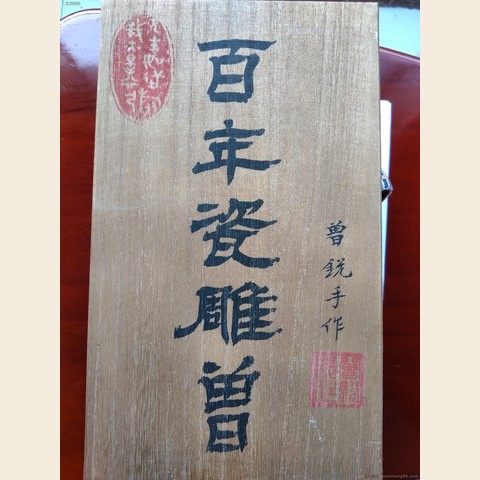 百年瓷雕曾
曾銳手作